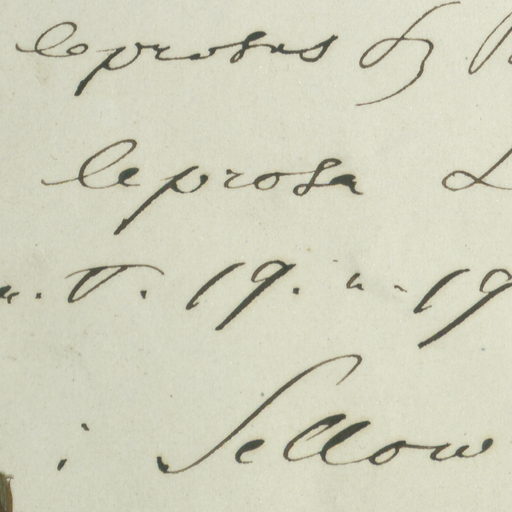 leprosus
leprosa
n. T. 19. n. 19
: Sellow